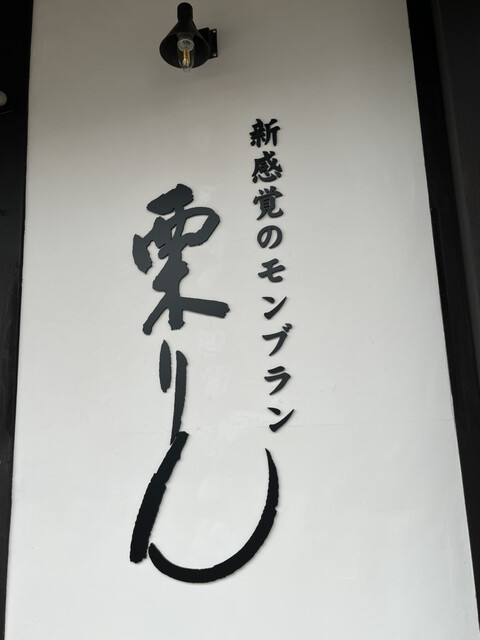 新感覚のモンブラン
栗りん